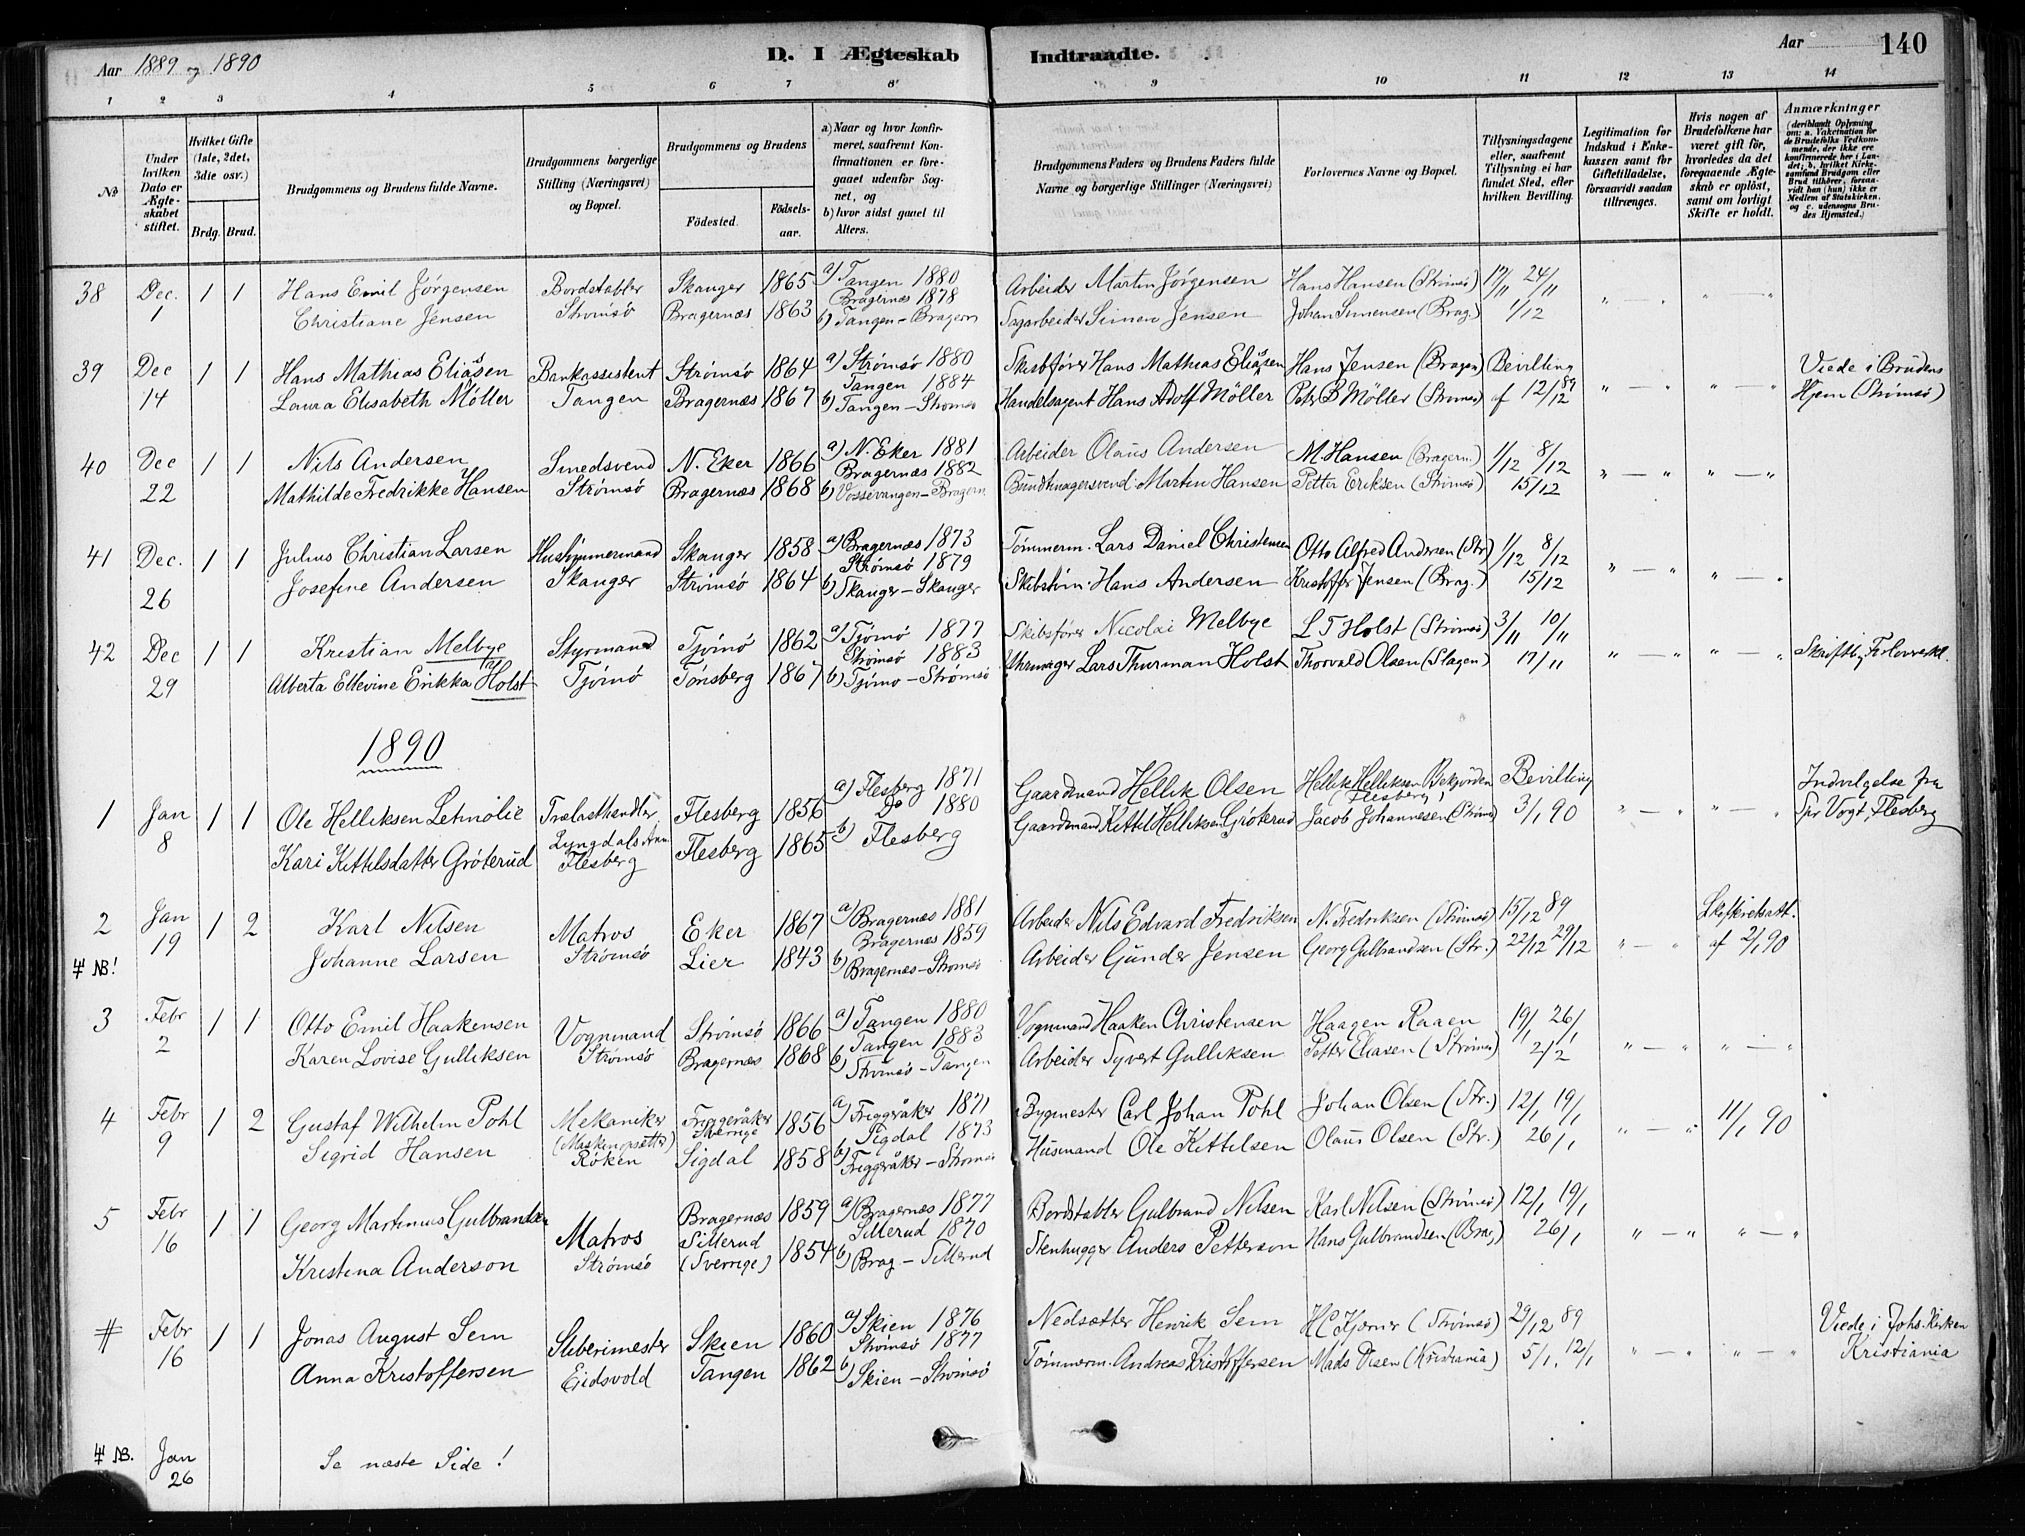 Aar 1889 og 1890
D. I Ægteskab Indtraadte.
Aar
140
1 2 3 4 5 6 7 8 9 10 11 12 13 14
No
Under hvilken Dato er Ægteskabet stiftet.
Hvilket Gifte (1ste, 2det, 3die osv.)
Brdg. Brud.
Brudgommens og Brudens fulde Navne.
Brudgommens borgerlige Stilling (Næringsvei) og Bopæl.
Brudgommens og Brudens
Fødested. Fødselsaar.
a) Naar og hvor konfirmeret, saafremt Konfirmationen er foregaaet udenfor Sognet, og
b) hvor sidst gaaet til Alters.
Brudgommens Faders og Brudens Faders fulde Navne og borgerlige Stillinger (Næringsvei)
Forlovernes Navne og Bopæl.
Tillysningsdagene eller, saafremt Tillysning ei har fundet Sted, efter hvilken Bevilling.
Legitimation for Indskud i Enkekassen samt for Giftetilladelse, forsaavidt saadan tiltrænges.
Hvis nogen af Brudefolkene har været gift før, hvorledes da det foregaaende Ægteskab er opløst, samt om lovligt Skifte er holdt.
Anmærkninger (deriblandt Oplysning om: a. Vakcination for de Brudefolks Vedkommende, der ikke ere konfirmerede her i Landet; b. hvilket Kirkesamfund Brudgom eller Brud tilhører, forsaavidt han (hun) ikke er Medlem af Statskirken, og c. udensogns Brudes Hjemsted.)
38 Dec. 1 1 1 Hans Emil Jørgensen Bordstabler Skanger 1865 a) Tangen 1880 Arbeider Martin Jørgensen Hans Hansen (Strömsö) 17/11 24/11
Christiane Jensen Strømsö Bragernæs 1863 Bragernæs 1878 b) Tangen - Bragern Sagarbeider Simen Jensen Johan Simensen (Brag.) 1/12
39 Dec 14 1 1 Hans Mathias Eliasen Bankassistent Strømsö 1864 a) Strømsö 1880 Skibsfører Hans Mathias Eliasen Hans Jensen (Bragen) Bevilling Viede i Brudens
Laura Elisabeth Möller Tangen Bragernæs 1867 Tangen 1884 b) Tangen - Strømsö Handelsagent Hans Adolf Möller Peter B Möller (Strömsö) af 12/12 89 Hjem (Strømsö)
40 Dec 22 1 1 Nils Andersen Smedsvend N. Eker 1866 a) N. Eker 1881 Arbeider Olaus Andersen M. Hansen (Bragern.) 1/12 8/12
Mathilde Fredrikke Hansen Strømsö Bragernæs 1868 Bragernæs 1882 b) Vossevangen - Bragern. Bundtmagersvend Martin Hansen Petter Eriksen (Strömsö) 15/12
41 Dec. 26 1 1 Julius Christian Larsen Hustømmermand Skanger 1858 a) Bragernæs 1873 Tømmerm. Lars Daniel Christensen Otto Alfred Andersen (Str) 1/12 8/12
Josefine Andersen Skanger Strømsö 1864 Strømsö 1879 b) Skanger - Skanger Skibstøm. Hans Andersen Kristoffer Jensen (Brag.) 15/12
42 Dec 29 1 1 Kristian Melbye Styrmand Tjømö 1862 a) Tjömö 1877 Skibsfører Nicolai Melbye L T Holst (Strömsö) 3/11 10/11
Alberta Ellevine Erikka Holst Tjømö Tønsberg 1867 Strømsö 1883 b) Tjömo - Strømsö Uhrmager Lars Thurman Holst Thorvald Olsen (Slagen) 17/11 Skriftlig Forloverskl.
1890
1 Jan 8 1 1 Ole Helliksen Letmolie Trælasthandler Flesberg 1856 a) Flesberg 1871 Gaardmand Hellik Olsen Hellik Helliksen Bekjorden (Flesberg) Bevilling Indvilgelse fra
Kari Kittilsdatter Grøterud Lyngdals Ann. Flesberg Flesberg 1865 Do 1880 b) Flesberg Gaardmand Kittel Helliksen Grøterud Jacob Johannesen (Strömsö) 3/1 90 Spr Vogt, Flesberg
2 Jan 19 1 2 Karl Nilsen Matros Eker 1867 a) Bragernæs 1881 Arbeider Nils Edvard Fredriksen N. Fredriksen (Strömsö) 15/12 89 Skifteretsatt.
# NB! Johanne Larsen Strømsö Lier 1843 Bragernæs 1859 b) Bragernæs - Stromsö Arbeider Gunder Jensen Georg Gulbrandsen (Str.) 22/12 29/12 af 2/1 90
3 Febr 2 1 1 Otto Emil Haakensen Vognmand Strømsö 1866 a) Tangen 1880 Vognmand Haaken Christensen Haagen Raaen 19/1 26/1
Karen Lovise Gulliksen Strømsö Bragernæs 1868 Tangen 1883 b) Strömsö - Tangen Arbeider Syvert Gulliksen Petter Eliasen (Strömsö) 2/2
4 Febr 9 1 2 Gustaf Wilhelm Pohl Mekaniker (Maskinopsetter) Friggeråker Sverrige 1856 a) Friggråker 1871 Bygmester Carl Johan Pohl Johan Olsen (Str.) 12/1 19/1 11/1 90
Sigrid Hansen Röken Sigdal 1858 Sigdal 1873 b) Friggeråker - Stromsö Husmand Ole Kittilsen Olaus Olsen (Str.) 26/1
5 Febr 16 1 1 Georg Martinius Gulbrandsen Matros Bragernæs 1859 a) Bragernæs 1877 Bordstabler Gulbrand Nilsen Karl Nilsen (Strömsö) 12/1 19/1
Kristina Anderson Strømsö Sillerud (Sverrige) 1854 Sillerud 1870 b) Brag - Sillerud Stenhugger Anders Petterson Hans Gulbrandsen (Brag) 26/1
# Febr 16 1 1 Jonas August Sem Sliberimester Skien 1860 a) Skien 1876 Nedsætter Henrik Sem H C Kjærner (Strömsö) 29/12 89 Viede i Johs. Kirken
Anna Kristoffersen Eidsvold Tangen 1862 Strømsö 1877 b) Skien - Strømsö Tömmerm. Andreas Kristoffersen Mads Disen (Kristiania) 5/1. 12/1 Kristiania
# NB. Jan 26 Se næste Side!